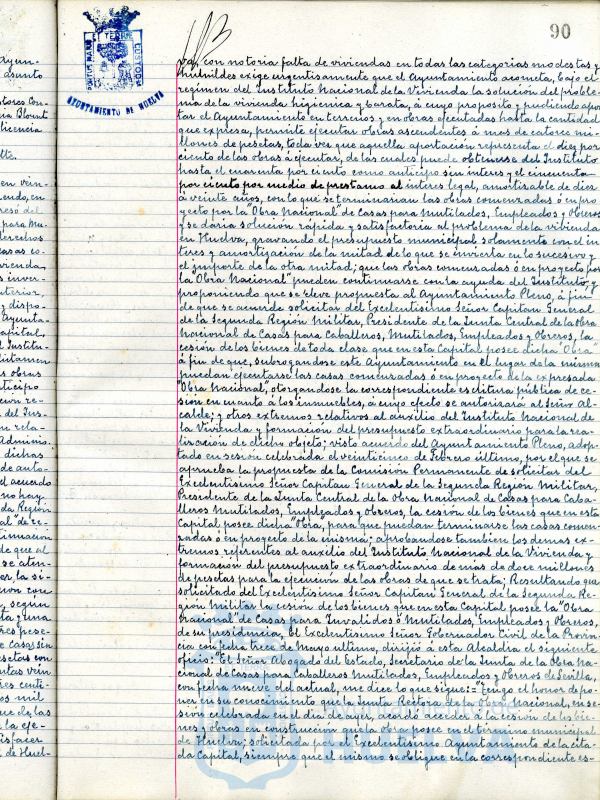 90
AYUNTAMIENTO DE HUELVA
dad, con notoria falta de viviendas en todas las categorias modestas y
humildes exige urgentemente que el Ayuntamiento acometa, bajo el
regimen del Instituto Nacional de la Vivienda la solución del proble-
ma de la vivienda higienica y barata, á cuyo proposito y pudiendo apor-
tar el Ayuntamiento en terrenos y en obras ejecutadas hasta la cantidad
que expresa, permite ejecutar obras ascendentes á mas de catorce mi-
llones de pesetas, toda vez que aquella aportación representa el diez por
ciento de las obras á ejecutar, de las cuales puede obtenerse del Instituto
hasta el cuarenta por ciento como anticipo sin interes y el cincuenta
por ciento por medio de prestamo al interes legal, amortizable de diez
á veinte años, con lo que se terminarian las obras comenzadas ó en pro-
yecto por la "Obra Nacional" de Casas para Mutilados, Empleados y Obreros
y se daria solución rápida y satisfactoria al problema de la vivienda
en Huelva, gravando el presupuesto municipal solamente con el in-
teres y amortización de la mitad de lo que se invierta en lo sucesivo y
el importe de la otra mitad; que las obras comenzadas ó en proyecto por
la "Obra Nacional" pueden continuarse con la ayuda del Instituto, y
proponiendo que se eleve propuesta al Ayuntamiento Pleno, á fin
de que se acuerde solicitar del Excelentisimo Señor Capitan General
de la Segunda Región Militar, Presidente de la Junta Central de la Obra
Nacional de Casas para Caballeros, Mutilados, Empleados y Obreros, la
cesión de los bienes de toda clase que en esta Capital posee dicha "Obra
á fin de que, subrogandose este Ayuntamiento en el lugar de la misma
puedan ejecutarse las casas comenzadas ó en proyecto de la expresada
"Obra Nacional", otorgandose la correspondiente escritura pública de ce-
sión en cuanto á los inmuebles, á cuyo efecto se autorizará al Señor Al-
calde; y otros extremos relativos al auxilio del Instituto Nacional de
la Vivienda y formación del presupuesto extraordinario para la rea-
lización de dicho objeto; visto acuerdo del Ayuntamiento Pleno, adop-
tado en sesión celebrada el veinticinco de Febrero último, por el que se
aprueba la propuesta de la Comisión Permanente de solicitar del
Excelentisimo Señor Capitan General de la Segunda Región Militar,
Presidente de la Junta Central de la Obra Nacional de Casas para Caba-
lleros Mutilados, Empleados y obreros, la cesión de los bienes que en esta
Capital posee dicha "Obra, para que puedan terminarse las casas comen-
zadas ó en proyecto de la misma; aprobandose tambien los demas ex-
tremos referentes al auxilio del Instituto Nacional de la Vivienda y
formación del presupuesto extraordinario de mas de doce millones
de pesetas para la ejecución de las obras de que se trata; Resultando que
solicitado del Excelentisimo Señor Capitan General de la Segunda Re-
gión Militar la cesión de los bienes que en esta Capital posee la "Obra
Nacional" de Casas para Invalidos ó Mutilados, Empleados y Obreros,
de su presidencia, El Excelentisimo Señor Gobernador Civil de la Provin-
cia con fecha trece de Mayo ultimo, dirijió á esta Alcaldia el siguiente
oficio: "El Señor Abogado del Estado, Secretario de la Junta de la Obra Na-
cional de Casas para Caballeros Mutilados, Empleados y Obreros de Sevilla,
con fecha nueve del actual, me dice lo que sigue: = "Tengo el honor de po-
ner en su conocimiento que la Junta Rectora de la Obra Nacional, en se-
sión celebrada en el dia de ayer, acordó acceder á la cesión de los bie-
nes y obras en construcción que la obra posee en el término municipal
de Huelva; solicitada por el Excelentisimo Ayuntamiento de la cita-
da Capital, siempre que el mismo se obligue en la correspondiente es-